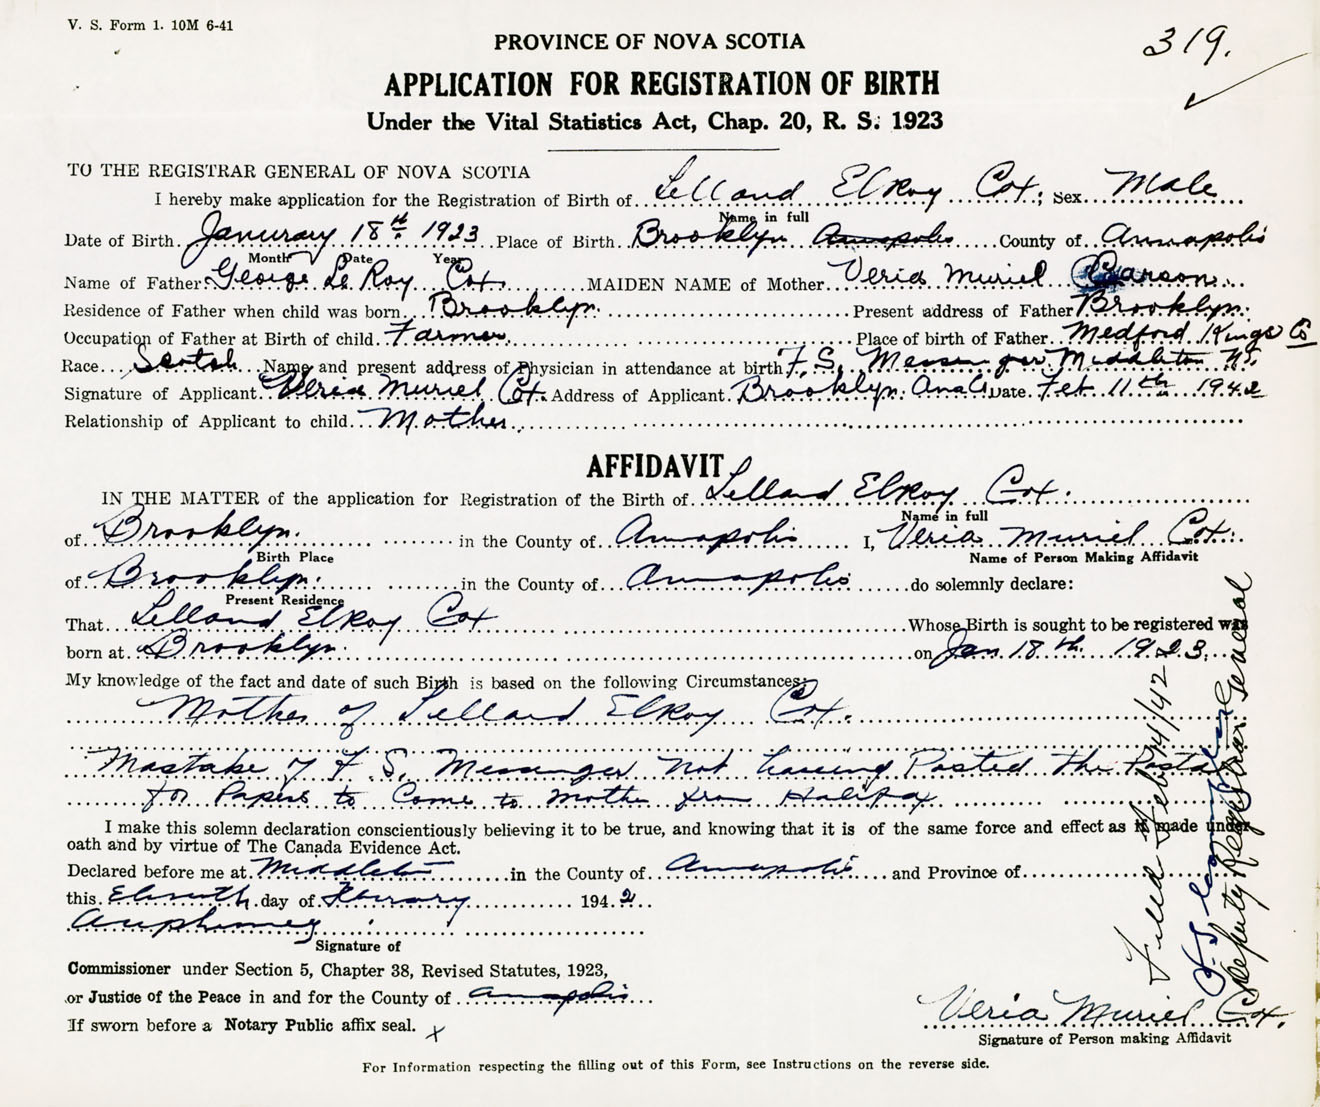 V. S. Form 1. 10M 6-41
319.
PROVINCE OF NOVA SCOTIA
APPLICATION FOR REGISTRATION OF BIRTH
Under the Vital Statistics Act, Chap. 20, R. S. 1923
TO THE REGISTRAR GENERAL OF NOVA SCOTIA
I hereby make application for the Registration of Birth of Lelland Elroy Cox; Sex Male
Name in full
Date of Birth Janurary 18th 1923 Place of Birth Brooklyn Annapolis County of Annapolis
Month Date Year
Name of Father George Le Roy Cox MAIDEN NAME of Mother Veria Muriel Pearson
Residence of Father when child was born Brooklyn Present address of Father Brooklyn
Occupation of Father at Birth of child Farmer Place of birth of Father Medford Kings Co
Race Scotch Name and present address of Physician in attendance at birth F. S. Messenger Middleton N.S.
Signature of Applicant Veria Muriel Cox Address of Applicant Brooklyn Date Feb 11th 1942
Relationship of Applicant to child Mother
AFFIDAVIT
IN THE MATTER of the application for Registration of the Birth of Lelland Elroy Cox.
Name in full
of Brooklyn in the County of Annapolis I, Veria Muriel Cox
Birth Place Name of Person Making Affidavit
of Brooklyn in the County of Annapolis do solemnly declare:
Present Residence
That Lelland Elroy Cox Whose Birth is sought to be registered was
born at Brooklyn on Jan 18th 1923.
My knowledge of the fact and date of such Birth is based on the following Circumstances:
Mother of Lelland Elroy Cox.
Mastake of F. S. Messenger not haveing Posted the Postal
for Papers to Come to Mother from Halifax
I make this solemn declaration conscientiously believing it to be true, and knowing that it is of the same force and effect as if made under
oath and by virtue of The Canada Evidence Act.
Declared before me at Middleton in the County of Annapolis and Province of
this Eleventh day of February 1942
Signature of
Commissioner under Section 5, Chapter 38, Revised Statutes, 1923,
or Justice of the Peace in and for the County of Annapolis
If sworn before a Notary Public affix seal. x
Veria Muriel Cox.
Signature of Person making Affidavit
For Information respecting the filling out of this Form, see Instructions on the reverse side.
Filed Feb 14/42
Deputy Registrar General